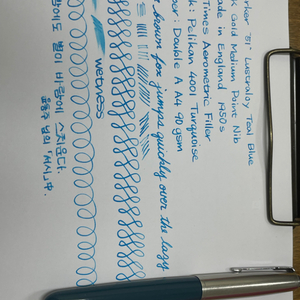 rker '51' Lustraloy Teal Blue
K Gold Medium Point Nib
ade in England 1950s
Times Aerometric Filler
k: Pelikan 4001 Turquoise
Double A A4 90 gsm
brown fox jumps quickly over the lazy
wetness
밤에도 별이 바람에 스치운다.
윤동주 님의 '서시' 中.